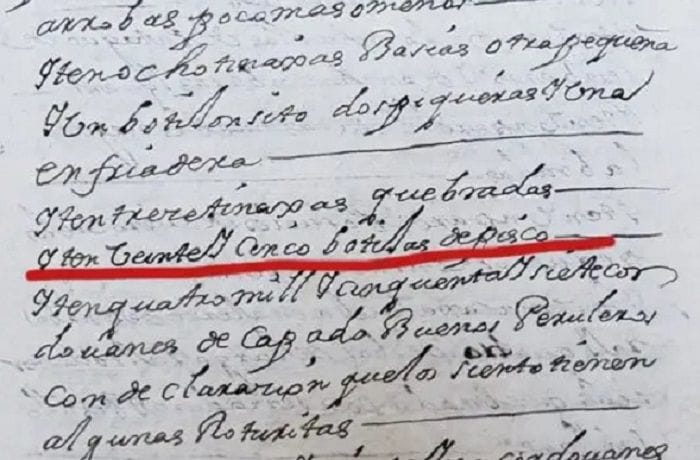 arrobas pocamasomenos
Yten ocho tinaxas Basias otra pequeña
Y Un botiIonsito dos piqueras Y Una
enfriadera
Yten trese tinaxas quebradas
Yten Veinte Y Cinco botixas de pisco
Yten quatro mill Y sinquenta Y siete cor
douanes de Capado Buenos Peruleros
con declarazion quelos siento tienen
algunas Roturitas